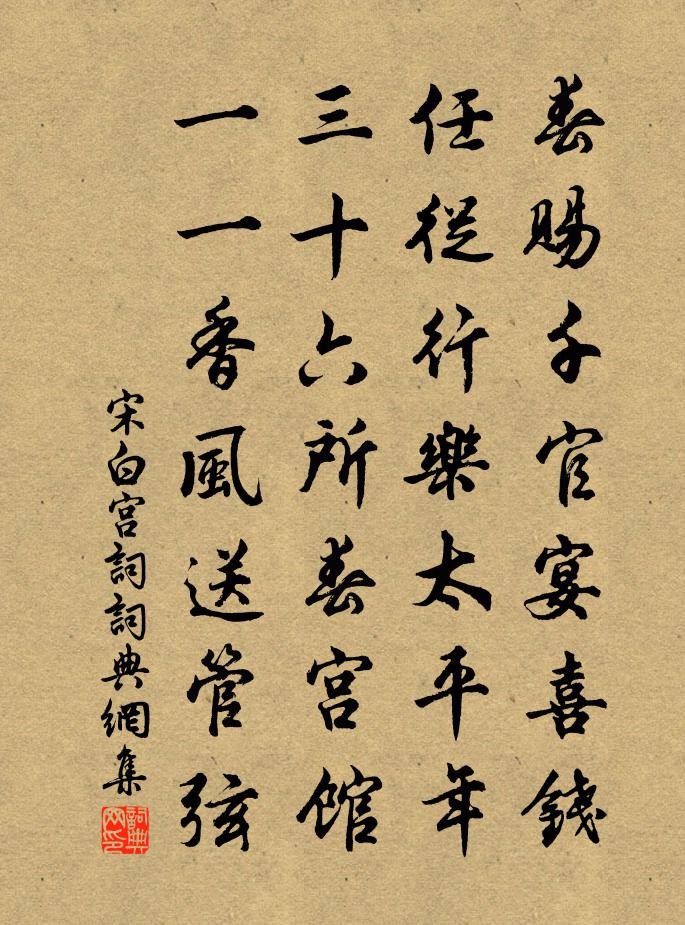 春賜千官宴喜錢
任從行樂太平年
三十六所春宮館
一一香風送管弦
宋白宮詞詞典網集
詞典网印